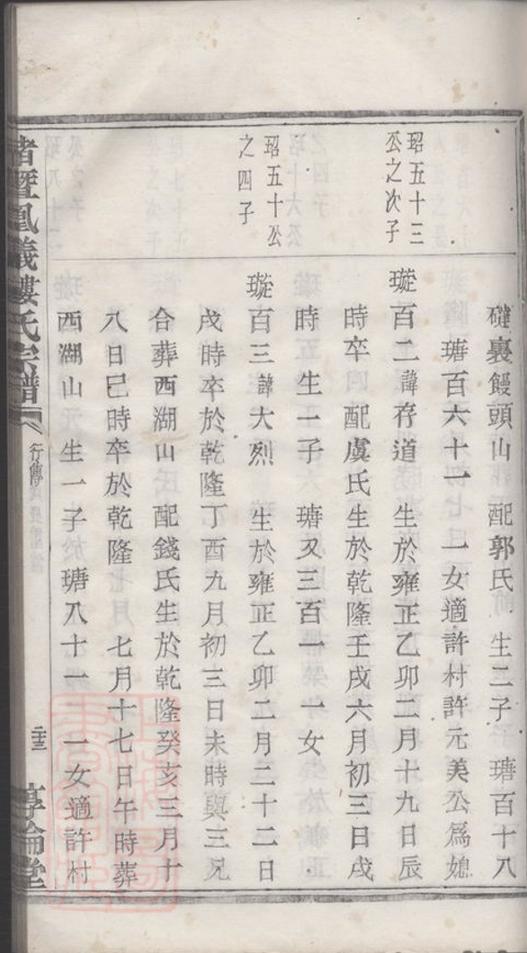 碰裏饅頭山　配郭氏　生二子　瑭百十八
瑭百六十一　一女適許村許元美公爲媳
珆五十三
公之次子
璇百二諱存道　生於雍正乙卯二月十九日辰
時卒　配虞氏生於乾隆壬戌六月初三日戌
時　生一子　瑭又三百一　一女
珆五十公
之四子
璇百三諱大烈　生於雍正乙卯二月二十二日
戌時卒於乾隆丁酉九月初三日未時與三兄
合葬西湖山　配錢氏生於乾隆癸亥三月十
八日巳時卒於乾隆　七月十七日午時葬
西湖山　生一子　瑭八十一　一女適許村
諸暨鳳儀樓氏宗譜　行傳　二十三　享倫堂